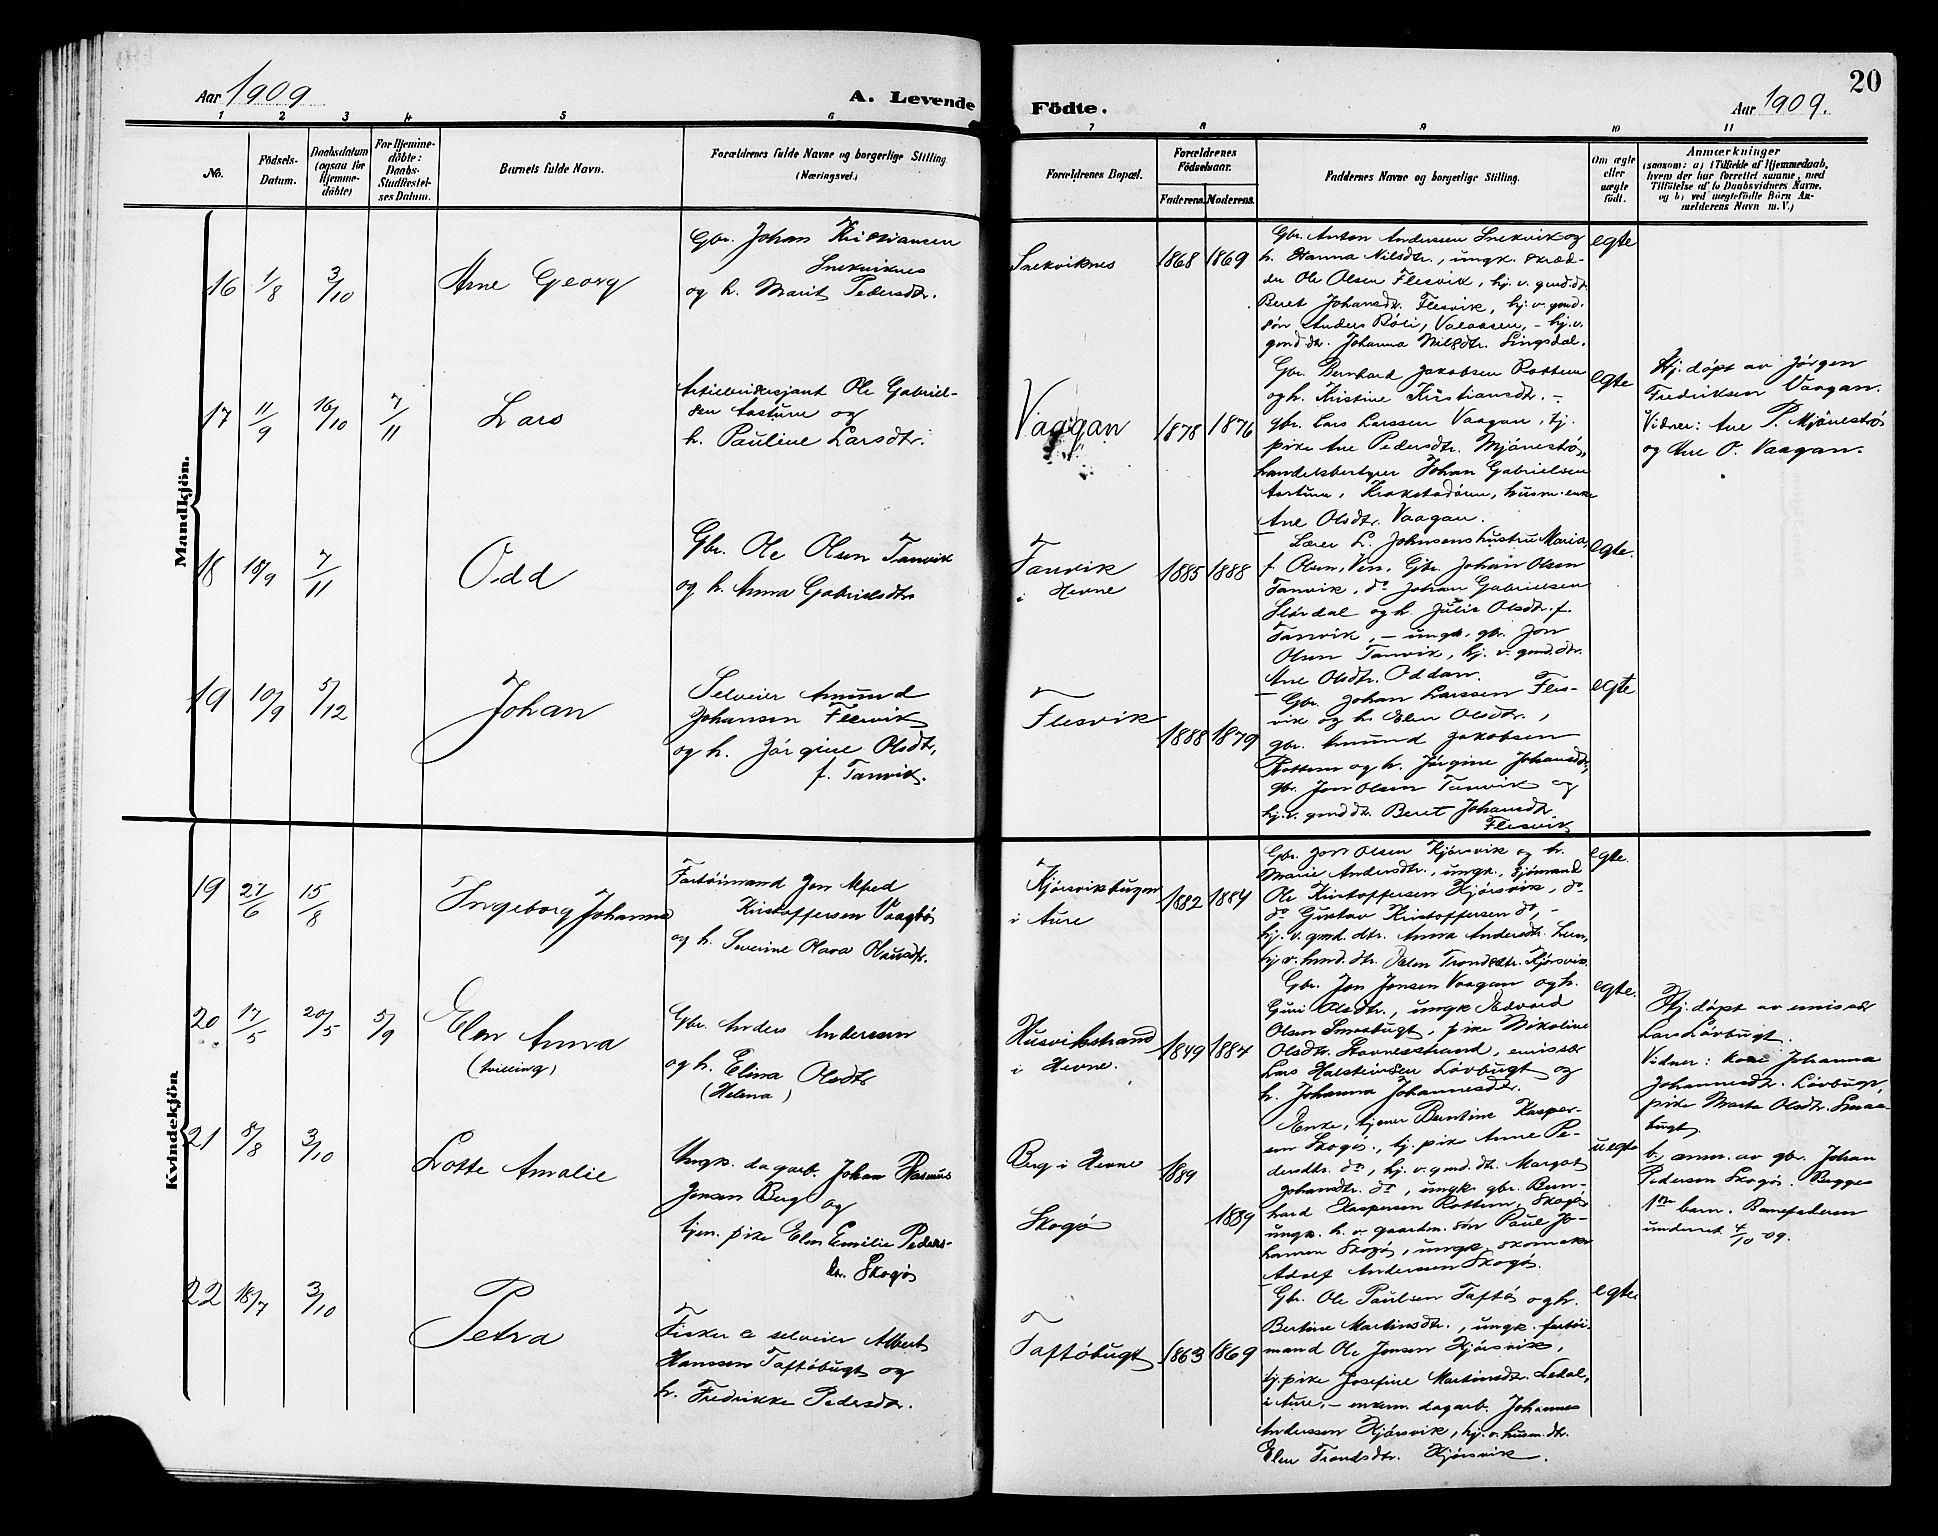 Aar 1909
A. Levende
Födte.
Aar 1909.
20
1 2 3 4 5 6 7 8 9 10 11
No.
Födsels-
Datum.
Daabsdatum
(ogsaa för
Hjemme-
döbte)
For Hjemme-
döbte:
Daabs-
Stadfæstel-
ses Datum.
Barnets fulde Navn.
Forældrenes fulde Navne og borgerlige Stilling
(Næringsvei.)
Forældrenes Bopæl.
Forældrenes
Födselsaar.
Faderens. Moderens.
Faddernes Navne og borgerlige Stilling.
Om ægte
eller
uægte
födt.
Anmærkninger
(saasom: a) i Tilfælde af Hjemmedaab,
hvem der har forrettet samme, med
Tilföielse af to Daabsvidners Navne,
og b) ved uægtefödte Börn An-
melderens Navn m. V.)
Mandkjön.
16 1/8 3/10
Arne Georg
Gbr. Johan Kristiansen
Snekviknes
og h. Marit Pedersdtr.
Snekviknes
1868 1869
Gbr. Anton Andersen Snekvik og
h. Hanna Nilsdtr., ungk. skræd-
der Ole Olsen Flesvik, hj. v. gmd.dt.
Beret Johansdt. Flesvik, hj. v. gmd.
søn Anders Röli, Valaasen, - hj. v.
gmd dtr. Johanna Nilsdtr. Singsdal.
egte
17 11/9 16/10 7/11
Lars
Artillerisersjant Ole Gabriel-
sen Aastune og
h. Pauline Larsdtr.
Vaagan
1878 1876
Gbr. Bernhard Jakobsen Rottem
og h. Kristine Kristiansdtr. -
gbr. Lars Larssen Vaagan, tj.
pike Ane Pedersdtr. Mjöneströ,
handelsbestyrer Johan Gabrielsen
Aastune, Krokstadören, husm. enke
Ane Olsdtr. Vaagan.
egte
Hj. döpt av Jörgen
Fredriksen Vaagan.
Vidner: Ane P. Mjöneströ
og Ane O. Vaagan.
18 18/9 7/11
Odd
Gbr. Ole Olsen Tanvik
og h. Anna Gabrielsdtr
Tanvik
i Hevne
1885 1888
Lærer L. Johnsens hustru Maria,
f. Olsen, Ven, Gbr. Johan Olsen
Tanvik, do Johan Gabrielsen
Slördal og h. Julie Olsdtr. f.
Tanvik, - ungk. gbr. Jon
Olsen Tanvik, hj. v. gmd. dtr.
Ane Olsdtr. Oddan.
egte.
19 10/9 5/12
Johan
Selveier Amund
Johansen Flesvik
og h. Jörgine Olsdtr,
f. Tanvik.
Flesvik
1888 1879
Gbr. Johan Larssen Fles-
vik og h. Elen Olsdtr,
gbr. Amund Jakobsen
Rottem og h. Jörgine Johansdtr,
gbr. Jon Olsen Tanvik og
hj. v. gmd dtr. Beret Johansdtr.
Flesvik
egte
Kvindekjön
19 27/6 15/8
Ingeborg Johanna
Fartöimand Jon Alfred
Kristoffersen Vaagbö
og h. Severine Olava Olausdtr.
Kjörsvikbugen
i Aure
1882 1884
Gbr. Jon Olsen Kjörsvik og h.
Marie Andersdtr., ungk., sjömand
Ole Kristoffersen Kjörsvik, do
do Gustav Kristoffersen do, -
hj. v. gmd. dtr. Anna Andersdtr.
hj. v. husmd. dtr. Elen Trondsdtr. Kjörsvik.
egte.
20 17/5 20/5 5/9
Elen Anna
(tvilling)
Gbr. Anders Andersen
og h. Elina Olsdtr
(Helena)
Husvikstrand
i Hevne.
1849 1884
Gbr. Jon Jonsen Vaagan og h.
Guri Olsdtr., ungk. Edvard
Olsen Smaabugt, pike Nikoline
Olsdtr. Stavnesstrand, emissær
Lars Halsteinsen Lövbugt og
h. Johanna Johannesdtr.
egte.
Hj. döpt av emissær
Lars Lövbugt.
Vidner: kone Johanna
Johannesdtr. Lövbugt,
pike Marta Olsdtr. Smaa-
bugt
21 8/8 3/10
Lotte Amalie
Ungk. dagarb. Johan Rasmus
Jonsen Berg og
tjen. pike Elen Emilie Peders-
dtr. Skogö
Berg i Hevne
1889
Skogö
1889
Enke, tjener Berntine Kasper-
sen Skogö, tj. pik Anne Pe-
dersdtr. do, hj. v. gmd. dtr. Margot
Johansdtr. do, ungk. gbr. Bern-
hard Kaspersen Rottem, Skogö,
ungk. h. v. gaardm. sön Paul Jo-
hansen Skogö, ungk. skomaker
Adolf Andersen Skogö.
uegte
b, anm. av gbr. Johan
Pedersen Skogö. Begges
1ste barn. Barnefaderen
underret 4/10-09.
22 18/7 3/10
Petra
Fisker & selveier Albert
Hanssen Taftöbugt og
h. Fredrikke Pedersdtr.
Taftöbugt
1863 1869
Gbr. Ole Paulsen Taftö og h.
Bertine Martinsdtr., ungk. fartöi-
mand Ole Jonsen Kjörsvik,
tj. pike Josefine Martinsdtr. Lesal,
i Aure, - enkem. dagarb. Johannes
Andersen Kjörsvik, hj. v. husm. dtr.
Elen Trondsdtr. Kjörsvik.
egte